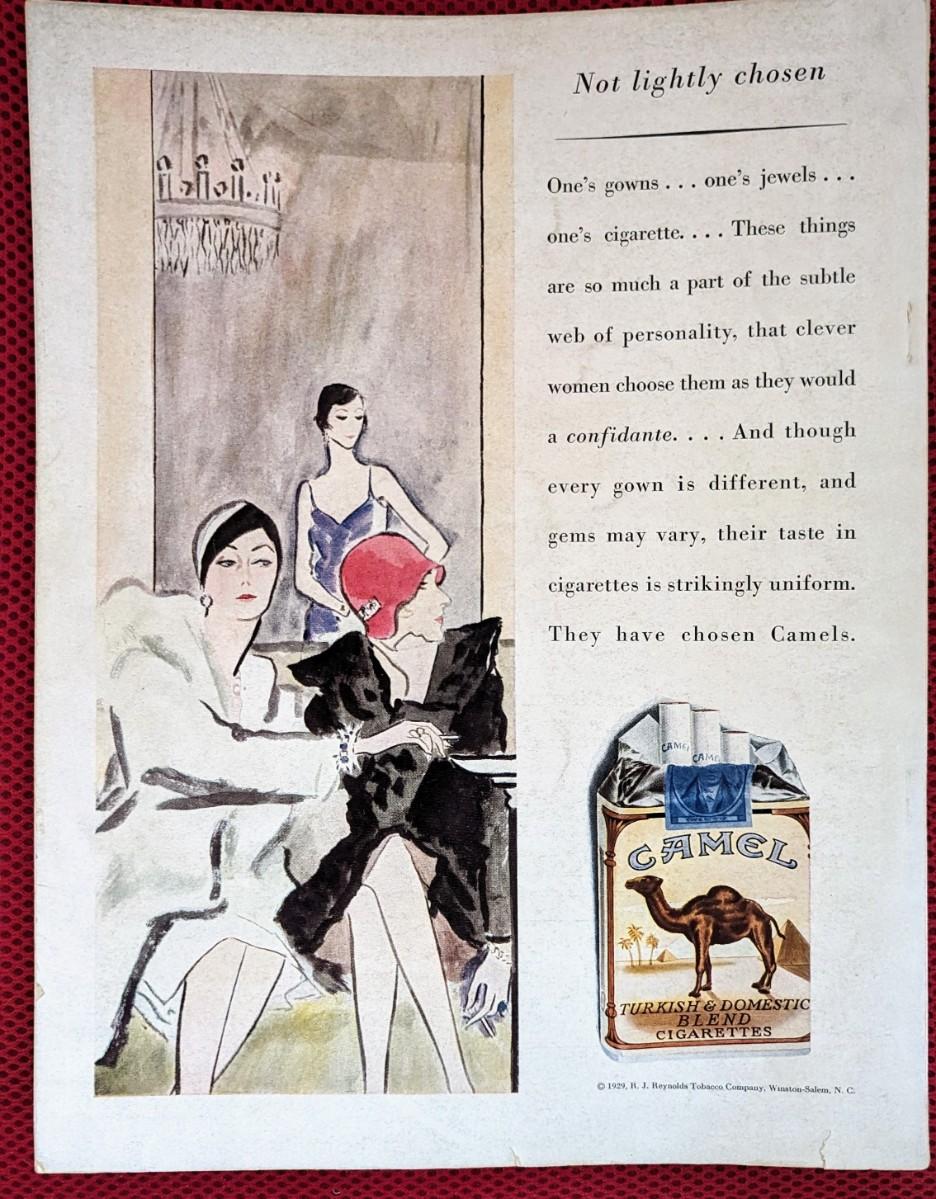 Not lightly chosen
One's gowns . . . one's jewels . . .
one's cigarette. . . . These things
are so much a part of the subtle
web of personality, that clever
women choose them as they would
a confidante. . . . And though
every gown is different, and
gems may vary, their taste in
cigarettes is strikingly uniform.
They have chosen Camels.
CAMEL
CAMEL
TURKISH & DOMESTIC
BLEND
CIGARETTES
© 1929, R. J. Reynolds Tobacco Company, Winston-Salem, N. C.